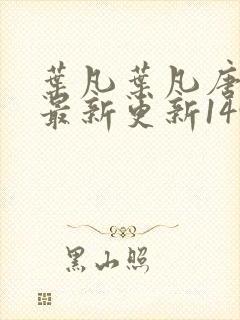 葉凡葉凡唐
最新更新14
黑山照